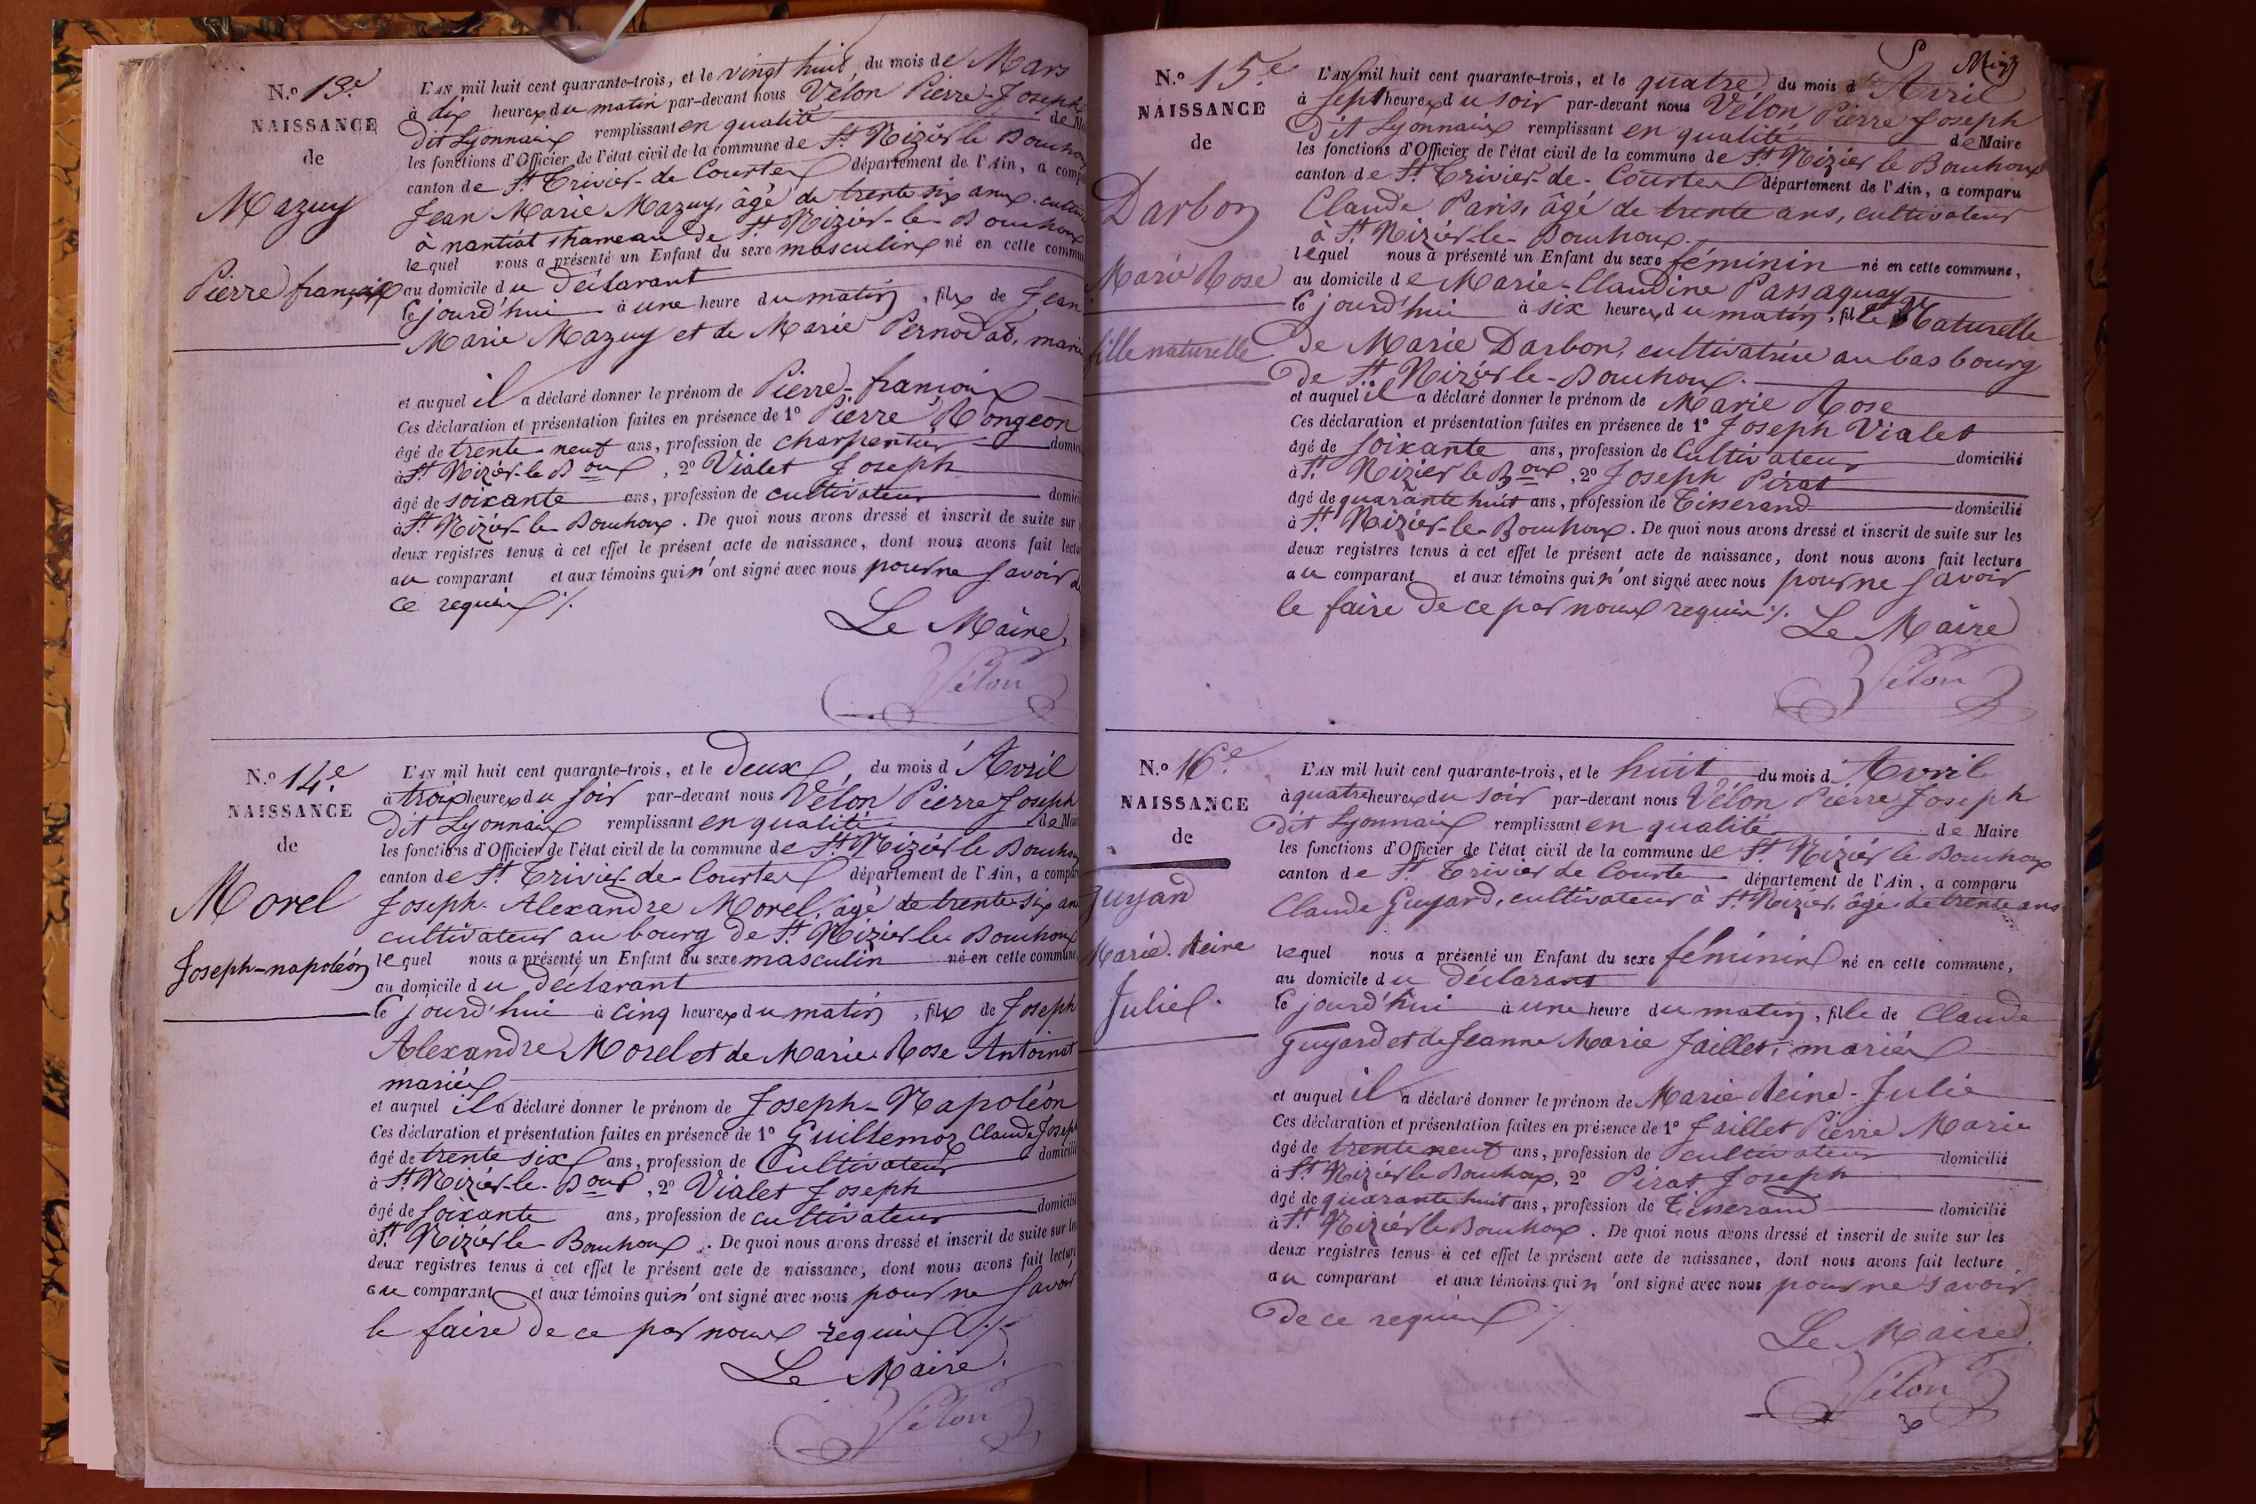 N.º 13.e
NAISSANCE
de
Mazuy
Pierre françois
L'AN mil huit cent quarante-trois, et le vingt huit, du mois de Mars
à dix heures du matin par-devant nous Vélon Pierre-Joseph
dit Lyonnais remplissant en qualité de
les fonctions d'Officier de l'état civil de la commune de St Nizier le Bouhoux
canton de St Trivier-de Courtes département de l'Ain, a comp
Jean Marie Mazuy, âgé de trente six ans,
à nantiat hameau de St Nizier-le-Bouhoux
lequel nous a présenté un Enfant du sexe masculin né en cette commu
au domicile du déclarant
le jourd'hui à une heure du matin, fils de Jean
Marie Mazuy et de Marie Pernodat, marié
et auquel il a déclaré donner le prénom de Pierre-françois
Ces déclaration et présentation faites en présence de 1º Pierre Rongeon
âgé de trente-neuf ans, profession de charpentier domici
à St Nizier-le Boux, 2º Vialet Joseph
âgé de soixante ans, profession de cultivateur domici
à St Nizier-le Bouhoux. De quoi nous avons dressé et inscrit de suite sur
deux registres tenus à cet effet le présent acte de naissance, dont nous avons fait lectu
au comparant et aux témoins qui n'ont signé avec nous pour ne savoir de
ce requis ./.
Le Maire,
Vélon
N.º 14.e
NAISSANCE
de
Morel
Joseph-napoléon
L'AN mil huit cent quarante-trois, et le deux, du mois d'Avril
à trois heures du soir par-devant nous Vélon Pierre Joseph
dit Lyonnais remplissant en qualité de
les fonctions d'Officier de l'état civil de la commune de St Nizier le Bouhoux
canton de St Trivier-de-Courtes département de l'Ain, a compa
Joseph-Alexandre Morel, âgé de trente six an
cultivateur au bourg de St Nizier le Bouhoux
lequel nous a présenté un Enfant du sexe masculin né en cette commune
au domicile du déclarant
le jourd'hui à cinq heures du matin, fils de Joseph
Alexandre Morel et de Marie-Rose Antoinat
mariés
et auquel il a déclaré donner le prénom de Joseph-Napoléon
Ces déclaration et présentation faites en présence de 1º Guillemoz Claude Joseph
âgé de trente six ans, profession de Cultivateur domicilié
à St Nizier-le-Boux, 2º Vialet Joseph
âgé de soixante ans, profession de cultivateur domicilié
à St Nizier le Bouhoux. De quoi nous avons dressé et inscrit de suite sur les
deux registres tenus à cet effet le présent acte de naissance, dont nous avons fait lectur
au comparant et aux témoins qui n'ont signé avec nous pour ne savoir
le faire de ce par nous requis ./.
Le Maire.
Vélon
N.º 15.e
NAISSANCE
de
Darbon
Marie Rose
fille naturelle
L'AN mil huit cent quarante-trois, et le quatre, du mois d'Avril
à sept heures du soir par-devant nous Vélon Pierre Joseph
dit Lyonnais remplissant en qualité de Maire
les fonctions d'Officier de l'état civil de la commune de St Nizier le Bouhoux
canton de St Trivier-de-Courtes département de l'Ain, a comparu
Claude Paris, âgé de trente ans, cultivateur
à St Nizier-le-Bouhoux.
lequel nous a présenté un Enfant du sexe féminin né en cette commune,
au domicile de Marie-Claudine Passaquay
le jourd'hui à six heures du matin, fille Naturelle
de Marie Darbon, cultivatrice au bas bourg
de St Nizier le-Bouhoux.
et auquel il a déclaré donner le prénom de Marie Rose
Ces déclaration et présentation faites en présence de 1º Joseph Vialet
âgé de soixante ans, profession de Cultivateur domicilié
à St Nizier le Boux, 2º Joseph Pirat
âgé de quarante huit ans, profession de Tisserand domicilié
à St Nizier-le-Bouhoux. De quoi nous avons dressé et inscrit de suite sur les
deux registres tenus à cet effet le présent acte de naissance, dont nous avons fait lecture
au comparant et aux témoins qui n'ont signé avec nous pour ne savoir
le faire de ce par nous requis ./.
Le Maire
Vélon
N.º 16.e
NAISSANCE
de
Guyard
Marie-Reine
Julie.
L'AN mil huit cent quarante-trois, et le huit du mois d'Avril
à quatre heures du soir par-devant nous Vélon Pierre Joseph
dit Lyonnais remplissant en qualité de Maire
les fonctions d'Officier de l'état civil de la commune de St Nizier le Bouhoux
canton de St Trivier de Courte département de l'Ain, a comparu
Claude Guyard, cultivateur à St Nizier, âgé de trente ans
lequel nous a présenté un Enfant du sexe féminin né en cette commune,
au domicile du déclarant
le jourd'hui à une heure du matin, fille de Claude
Guyard et de Jeanne Marie Jaillet, mariés
et auquel il a déclaré donner le prénom de Marie Reine-Julie
Ces déclaration et présentation faites en présence de 1º Jaillet Pierre Marie
âgé de trente neuf ans, profession de cultivateur domicilié
à St Nizier le Bouhoux, 2º Pirat Joseph
âgé de quarante huit ans, profession de Tisserand domicilié
à St Nizier le Bouhoux. De quoi nous avons dressé et inscrit de suite sur les
deux registres tenus à cet effet le présent acte de naissance, dont nous avons fait lecture
au comparant et aux témoins qui n'ont signé avec nous pour ne savoir
de ce requis ./.
Le Maire.
Vélon